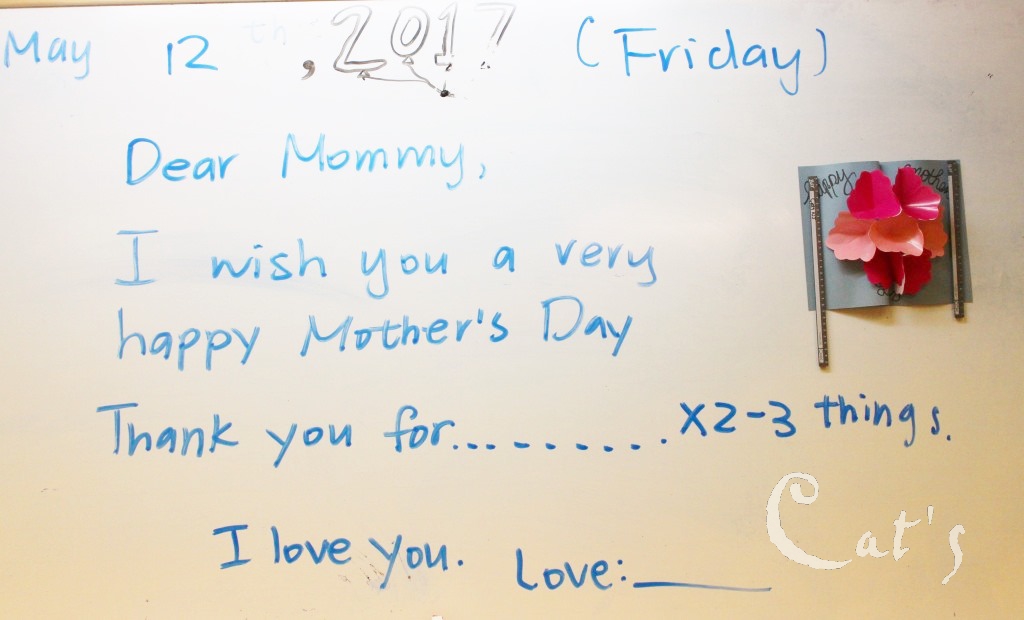 May 12 th, 2017 (Friday)
Dear Mommy,
I wish you a very
happy Mother's Day
Thank you for.......... x2-3 things.
I love you. Love:______
Happy Mother
Day
Cat's